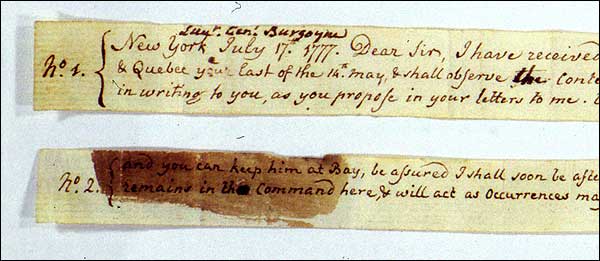 Lieut. Gen.l Burgoyne
New York July 17th. 1777. Dear Sir, I have received
No. 1.
& Quebec your last of the 14th. may, & shall observe the Conte
in writing to you, as you propose in your letters to me.
and you can keep him at Bay, be assured I shall soon be afte
No. 2.
remains in the Command here, & will act as Occurrences may